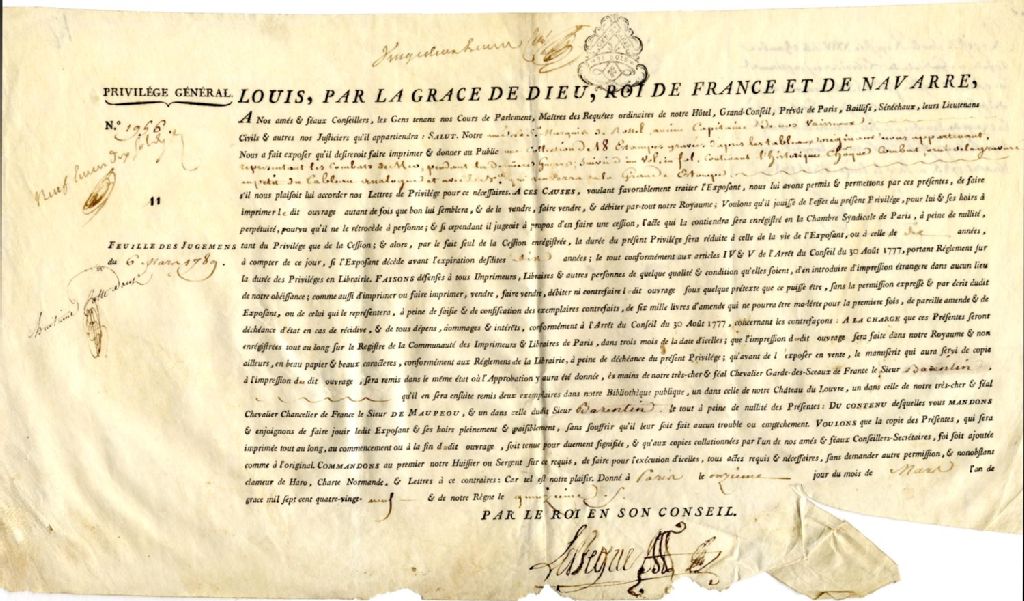 PRIVILÉGE GÉNÉRAL.
LOUIS, PAR LA GRACE DE DIEU, ROI DE FRANCE ET DE NAVARRE,
N.º 1966
11
FEUILLE DES JUGEMENS
du 6 Mars 1789.
A Nos amés & féaux Conseillers, les Gens tenans nos Cours de Parlement, Maîtres des Requêtes ordinaires de notre Hôtel, Grand-Conseil, Prévôt de Paris, Baillifs, Sénéchaux, leurs Lieutenans
Civils & autres nos Justiciers qu'il appartiendra : SALUT. Notre Marquis de ancien Capitaine de nos Vaisseaux
Nous a fait exposer qu'il desireroit faire imprimer & donner au Public une Collection de 18 Estampes gravées d'après les tableaux
représentant les Combats de Mer, pendant la dernière guerre, Suivie d'un vol. in fol. contenant l'historique de chaque Combat
s'il nous plaisoit lui accorder nos Lettres de Privilége pour ce nécessaires. A CES CAUSES, voulant favorablement traiter l'Exposant, nous lui avons permis & permettons par ces présentes, de faire
imprimer le dit ouvrage autant de fois que bon lui semblera, & de la vendre, faire vendre, & débiter par-tout notre Royaume ; Voulons qu'il jouisse de l'effet du présent Privilége, pour lui & ses hoirs à
perpétuité, pourvu qu'il ne le rétrocède à personne ; & si cependant il jugeoit à propos d'en faire une cession, l'acte qui la contiendra sera enrégistré en la Chambre Syndicale de Paris, à peine de nullité,
tant du Privilége que de la Cession ; & alors, par le fait seul de la Cession enrégistrée, la durée du présent Privilége sera réduite à celle de la vie de l'Exposant, ou à celle de dix années,
à compter de ce jour, si l'Exposant décéde avant l'expiration desdites dix années ; le tout conformément aux articles IV & V de l'Arrêt du Conseil du 30 Août 1777, portant Réglement sur
la durée des Priviléges en Librairie. FAISONS défenses à tous Imprimeurs, Libraires & autres personnes de quelque qualité & condition qu'elles soient, d'en introduire d'impression étrangere dans aucun lieu
de notre obéissance ; comme aussi d'imprimer ou faire imprimer, vendre, faire vendre, débiter ni contrefaire ledit ouvrage sous quelque prétexte que ce puisse être, sans la permission expresse & par écrit dudit
Exposant, ou de celui qui le représentera, à peine de saisie & de confiscation des exemplaires contrefaits, de six mille livres d'amende qui ne pourra être modérée pour la premiere fois, de pareille amende & de
déchéance d'état en cas de récidive, & de tous dépens, dommages & intérêts, conformément à l'Arrêt du Conseil du 30 Août 1777, concernant les contrefaçons : A LA CHARGE que ces Présentes seront
enrégistrées tout au long sur le Registre de la Communauté des Imprimeurs & Libraires de Paris, dans trois mois de la date d'icelles ; que l'impression dudit ouvrage sera faite dans notre Royaume & non
ailleurs, en beau papier & beaux caracteres, conformément aux Réglemens de la Librairie, à peine de déchéance du présent Privilége ; qu'avant de l'exposer en vente, le manuscrit qui aura servi de copie
à l'impression dudit ouvrage, sera remis dans le même état où l'Approbation y aura été donnée, ès mains de notre très-cher & féal Chevalier Garde-des-Sceaux de France le Sieur Barentin
qu'il en sera ensuite remis deux exemplaires dans notre Bibliothéque publique, un dans celle de notre Château du Louvre, un dans celle de notre très-cher & féal
Chevalier Chancelier de France le Sieur DE MAUPEOU, & un dans celle dudit Sieur Barentin. le tout à peine de nullité des Présentes : DU CONTENU desquelles vous MANDONS
& enjoignons de faire jouir ledit Exposant & ses hoirs pleinement & paisiblement, sans souffrir qu'il leur soit fait aucun trouble ou empêchement. VOULONS que la copie des Présentes, qui sera
imprimée tout au long, au commencement ou à la fin dudit ouvrage, soit tenue pour duement signifiée, & qu'aux copies collationnées par l'un de nos amés & féaux Conseillers-Secrétaires, foi soit ajoutée
comme à l'original. COMMANDONS au premier notre Huissier ou Sergent sur ce requis, de faire pour l'exécution d'icelles, tous actes requis & nécessaires, sans demander autre permission, & nonobstant
clameur de Haro, Charte Normande, & Lettres à ce contraires : Car tel est notre plaisir. Donné à Paris le onzieme jour du mois de Mars l'an de
grace mil sept cent quatre-vingt-neuf & de notre Règne le quinzieme
PAR LE ROI EN SON CONSEIL.
LeBegue